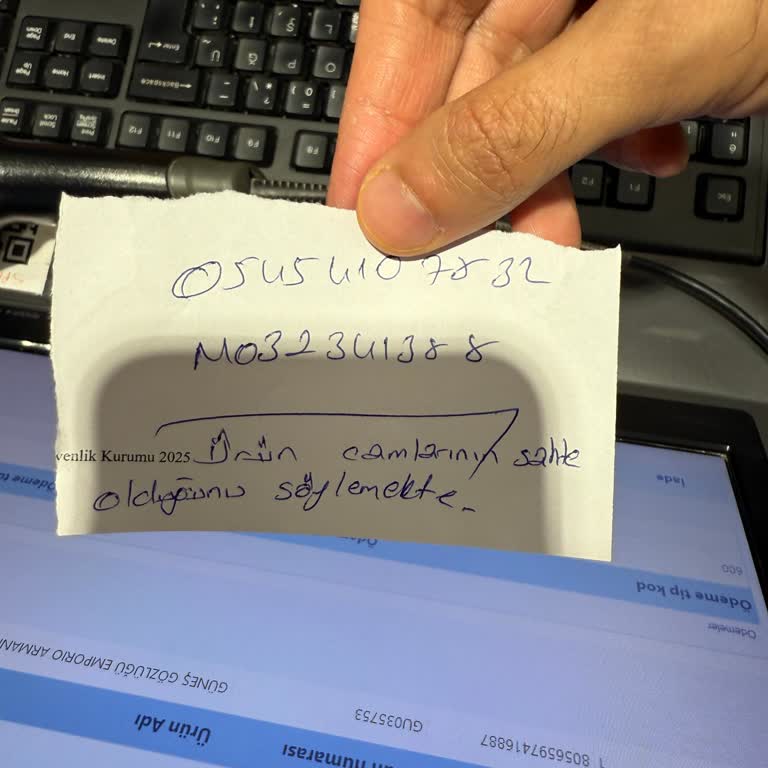 05454107832
M032341388
venlik Kurumu 2025 Ürün camlarının sahte
olduğunu söylemekte.
İade
600
Ödeme tip kod
Ödemeler
GÜNEŞ GÖZLÜĞÜ EMPORIO ARMANI
GU035753
1 8056597416887
Ürün Adı
numarası
Page Down
End
Delete
Page Up
Home
Insert
Enter
Backspace
Scroll Lock
F12
F11
F10
F9
F8
F2
F1
Esc